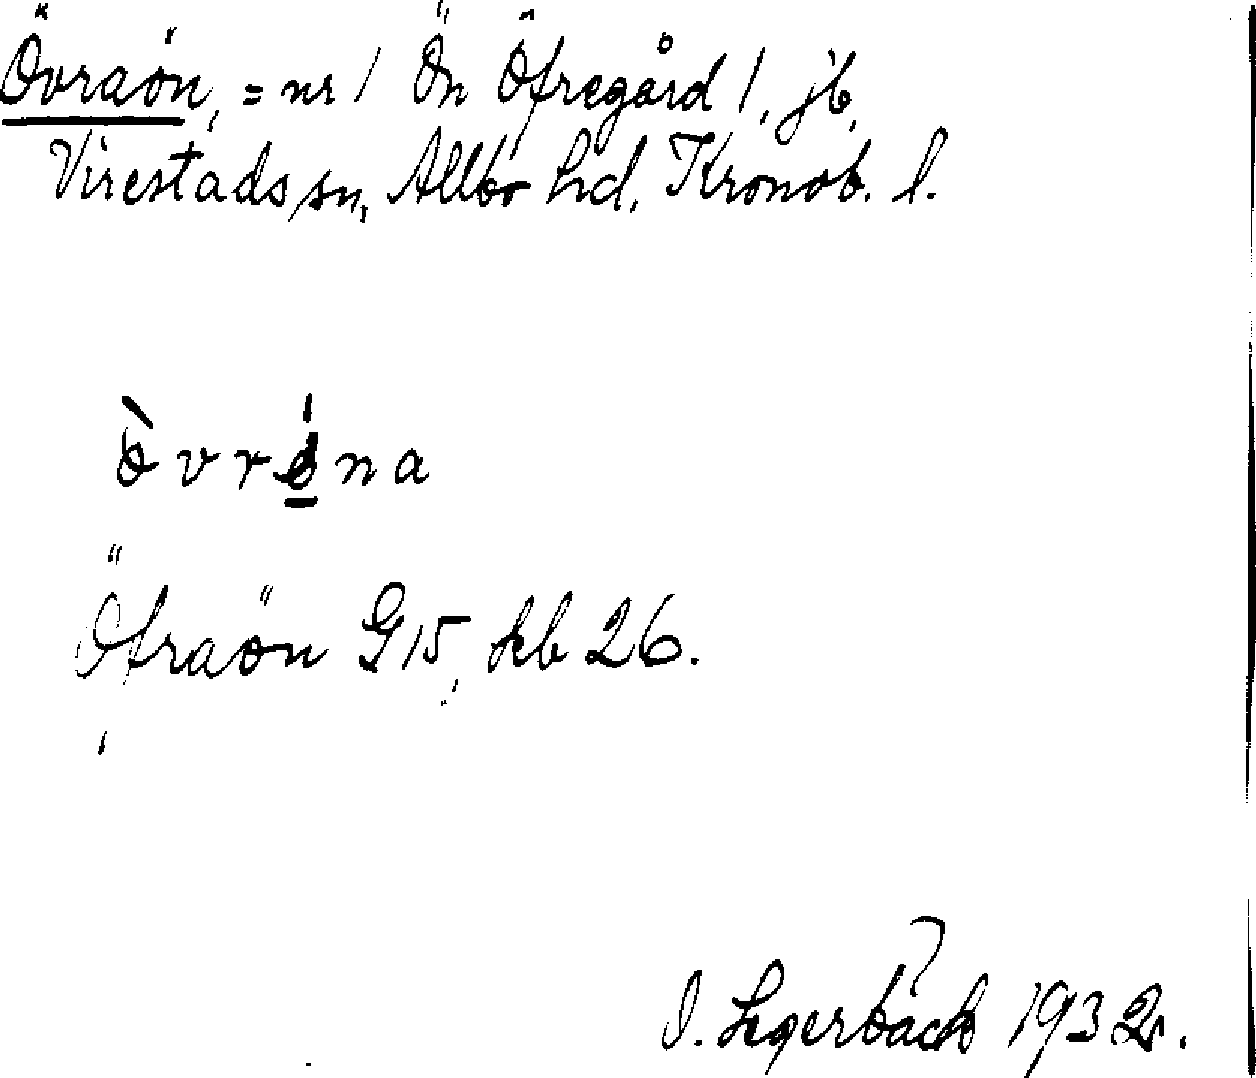 Övraön, = nr 1 Ön Öfregård 1, jb,
Virestads sn, Allbo hd, Kronob. l.
òvrǿna
Öfraön G15, kb 26.
1932.